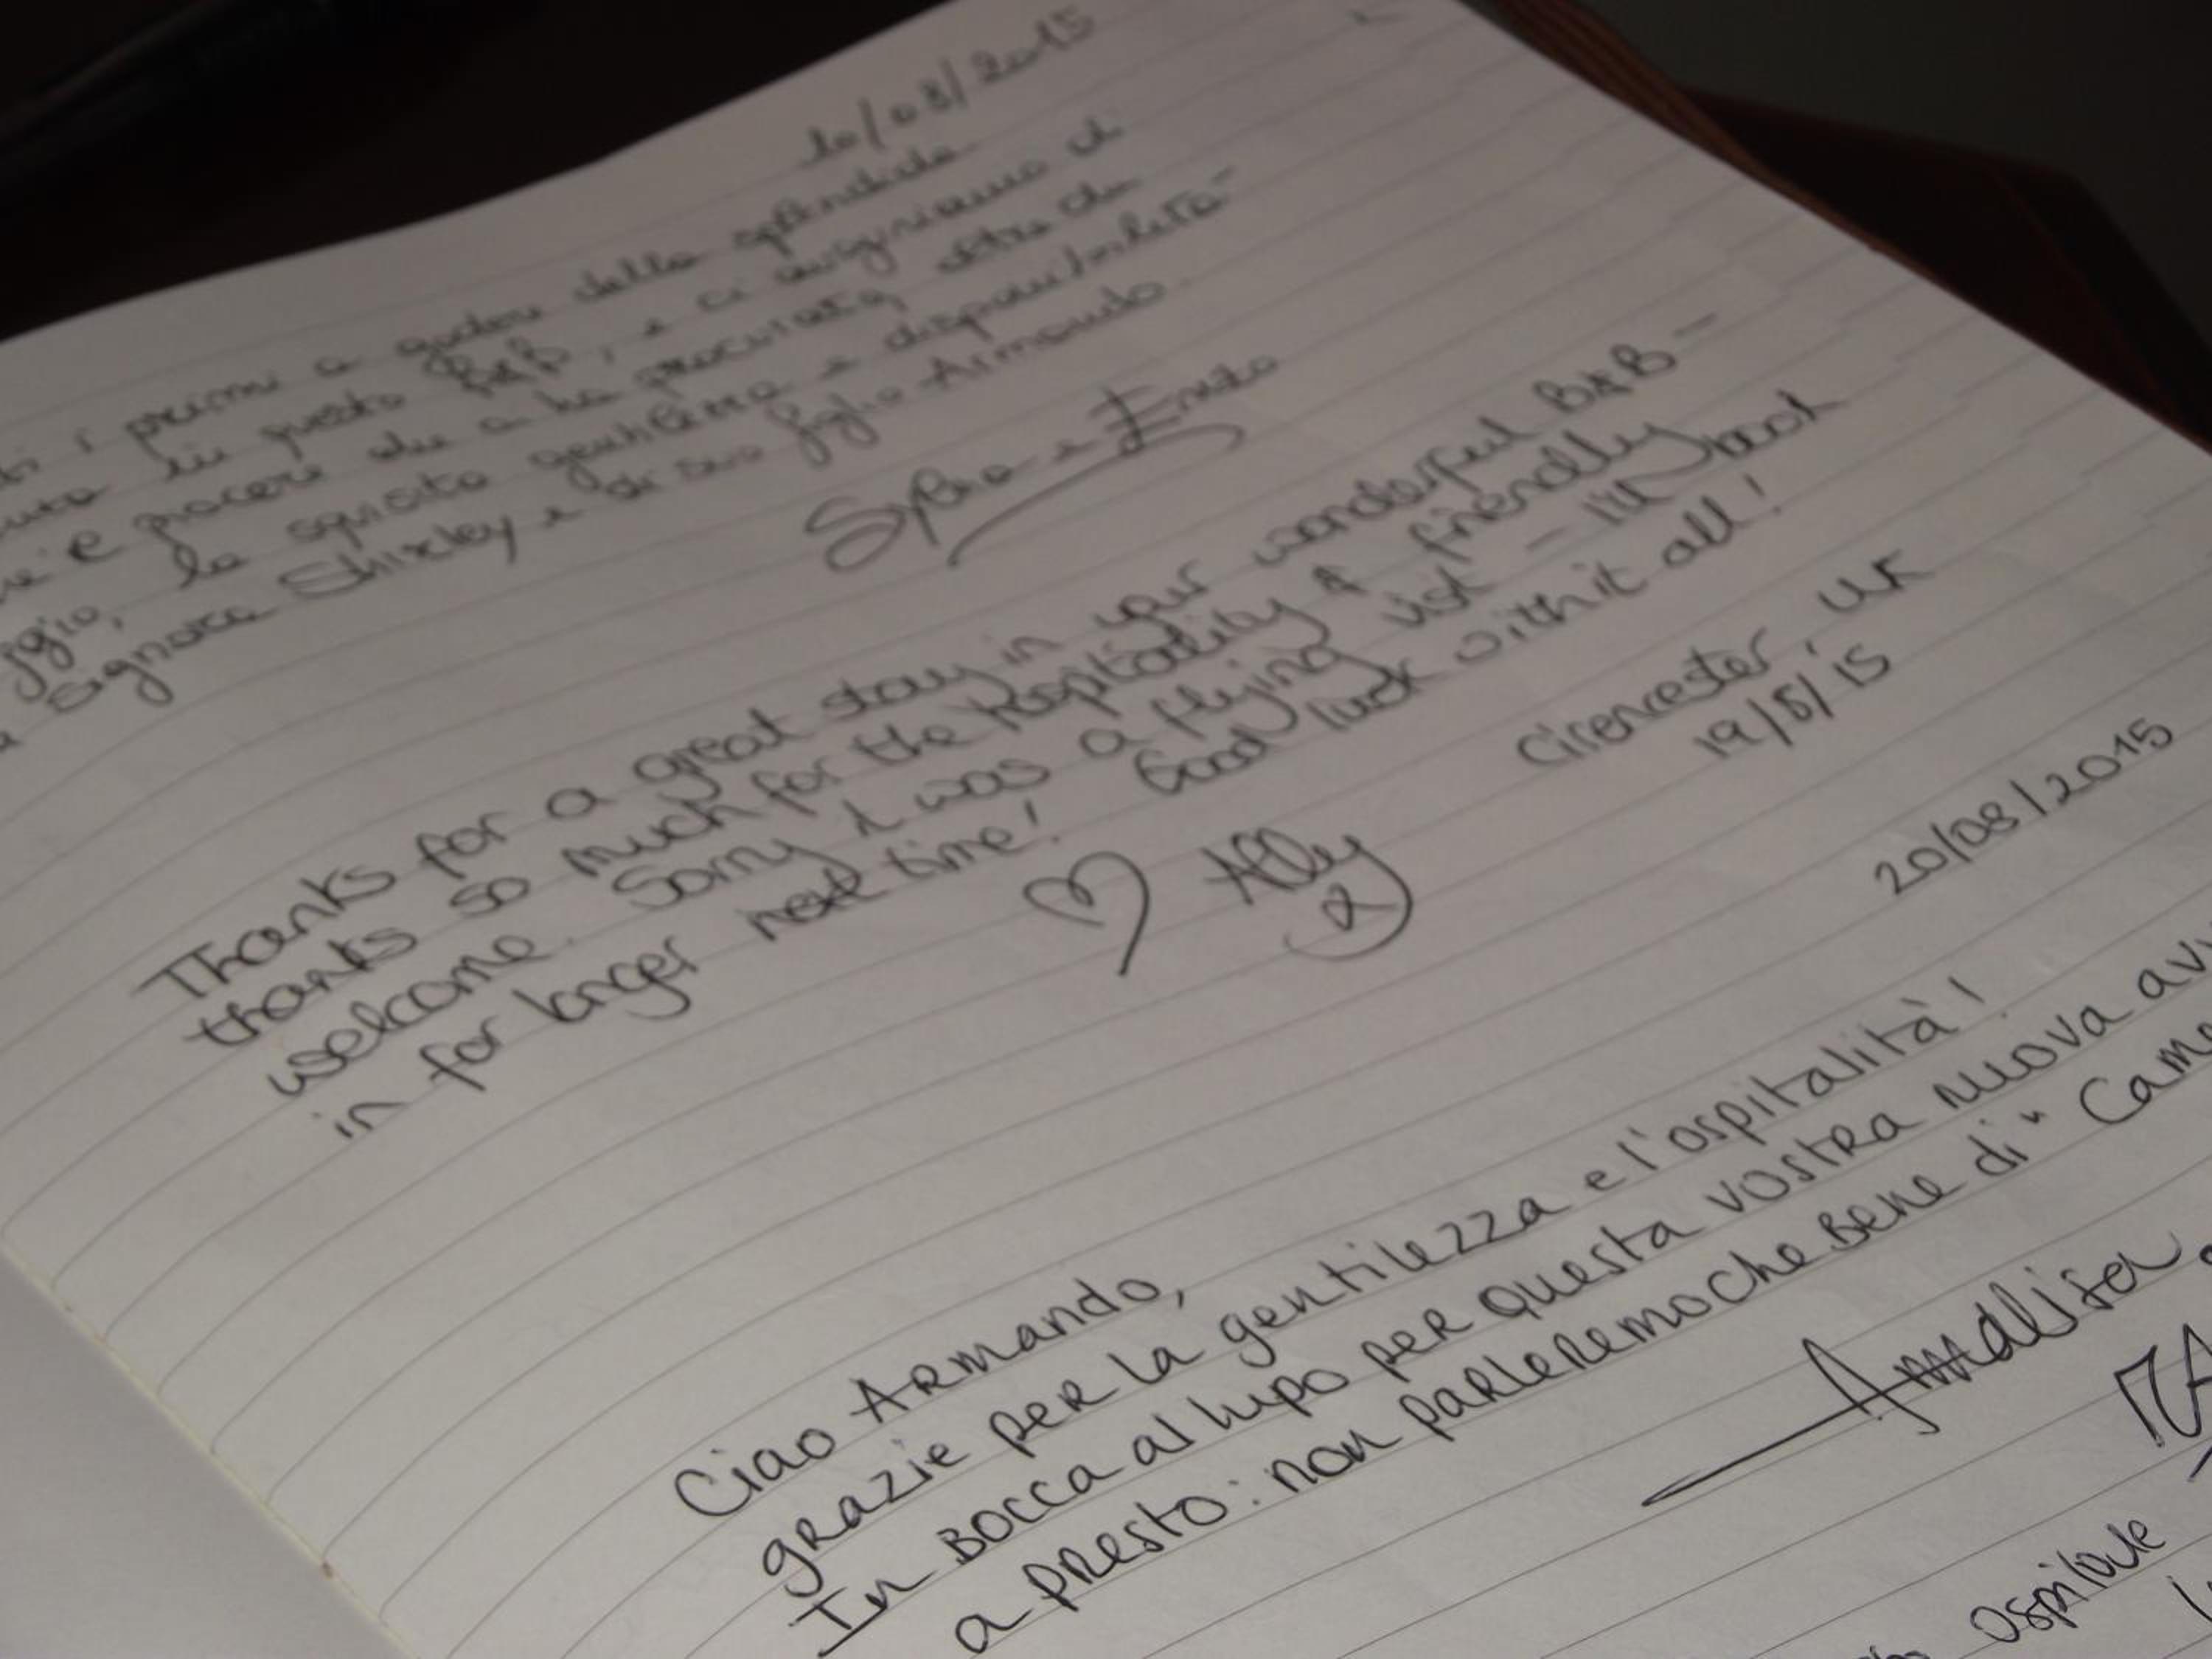 10/08/2015
i primi a godere della splendida
in questo B&B, e ci auguriamo di
e piacere che ci ha procurato, oltre che
ggio, la squisita gentilezza e disponibilità
signora Shirley e di suo figlio Armando.
Sylvia e Enzo
Thanks for a great stay in your wonderful B&B –
thanks so much for the hospitality & friendly
welcome. Sorry it was a flying visit – I'll book
in for longer next time! Good luck with it all!
Ally
Cirencester, UK
19/8/15
20/08/2015
Ciao Armando,
grazie per la gentilezza e l'ospitalità!
In bocca al lupo per questa vostra nuova avv
a presto: non parleremo che bene di "Came
Annalisa
ospitale